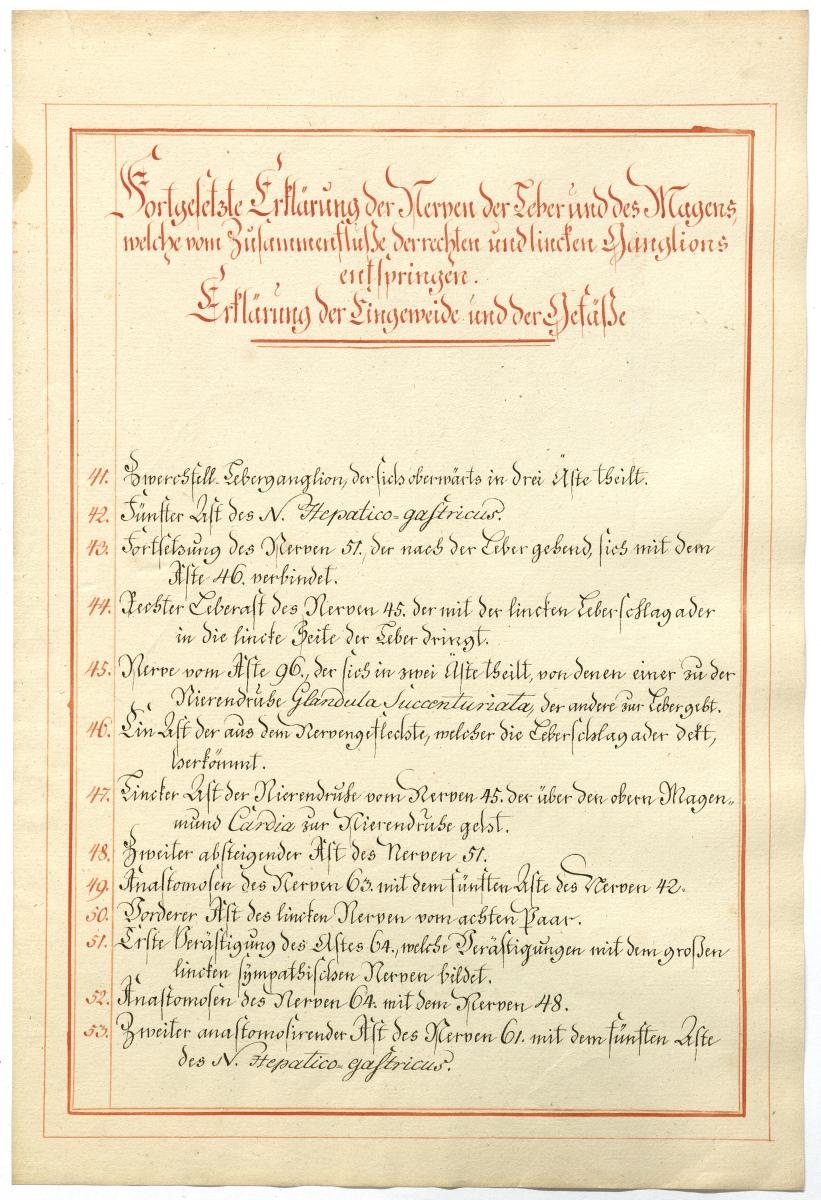 Fortgesetzte Erklärung der Nerven der Leber und des Magens,
welche vom Zusammenfluße der rechten und lincken Ganglions
entspringen.
Erklärung der Eingeweide und der Gefäße
41. Zwerchfell-Leberganglion, der sich oberwärts in drei Äste theilt.
42. Fünfter Ast des N. Hepatico-gastricus.
43. Fortsetzung des Nerven 51., der nach der Leber gehend, sich mit dem
Aste 46. verbindet.
44. Rechter Leberast des Nerven 45. der mit der lincken Leberschlagader
in die lincke Seite der Leber dringt.
45. Nerve vom Aste 96., der sich in zwei Äste theilt, von denen einer zu der
Nierendruse Glandula Succenturiata, der andere zur Leber geht.
46. Ein Ast der aus dem Nervengeflechte, welcher die Leberschlagader dekt,
herkömmt.
47. Lincker Ast der Nierendruse vom Nerven 45. der über den obern Magen-
mund Cardia zur Nierendruse geht.
48. Zweiter absteigender Ast des Nerven 51.
49. Anastomosen des Nerven 63. mit dem fünften Aste des Nerven 42.
50. Vorderer Ast des lincken Nerven vom achten Paar.
51. Erste Verästigung des Astes 64., welche Verästigungen mit dem großen
lincken sympathischen Nerven bildet.
52. Anastomosen des Nerven 64. mit dem Nerven 48.
53. Zweiter anastomosirender Ast des Nerven 61. mit dem fünften Aste
des N. Hepatico-gastricus.